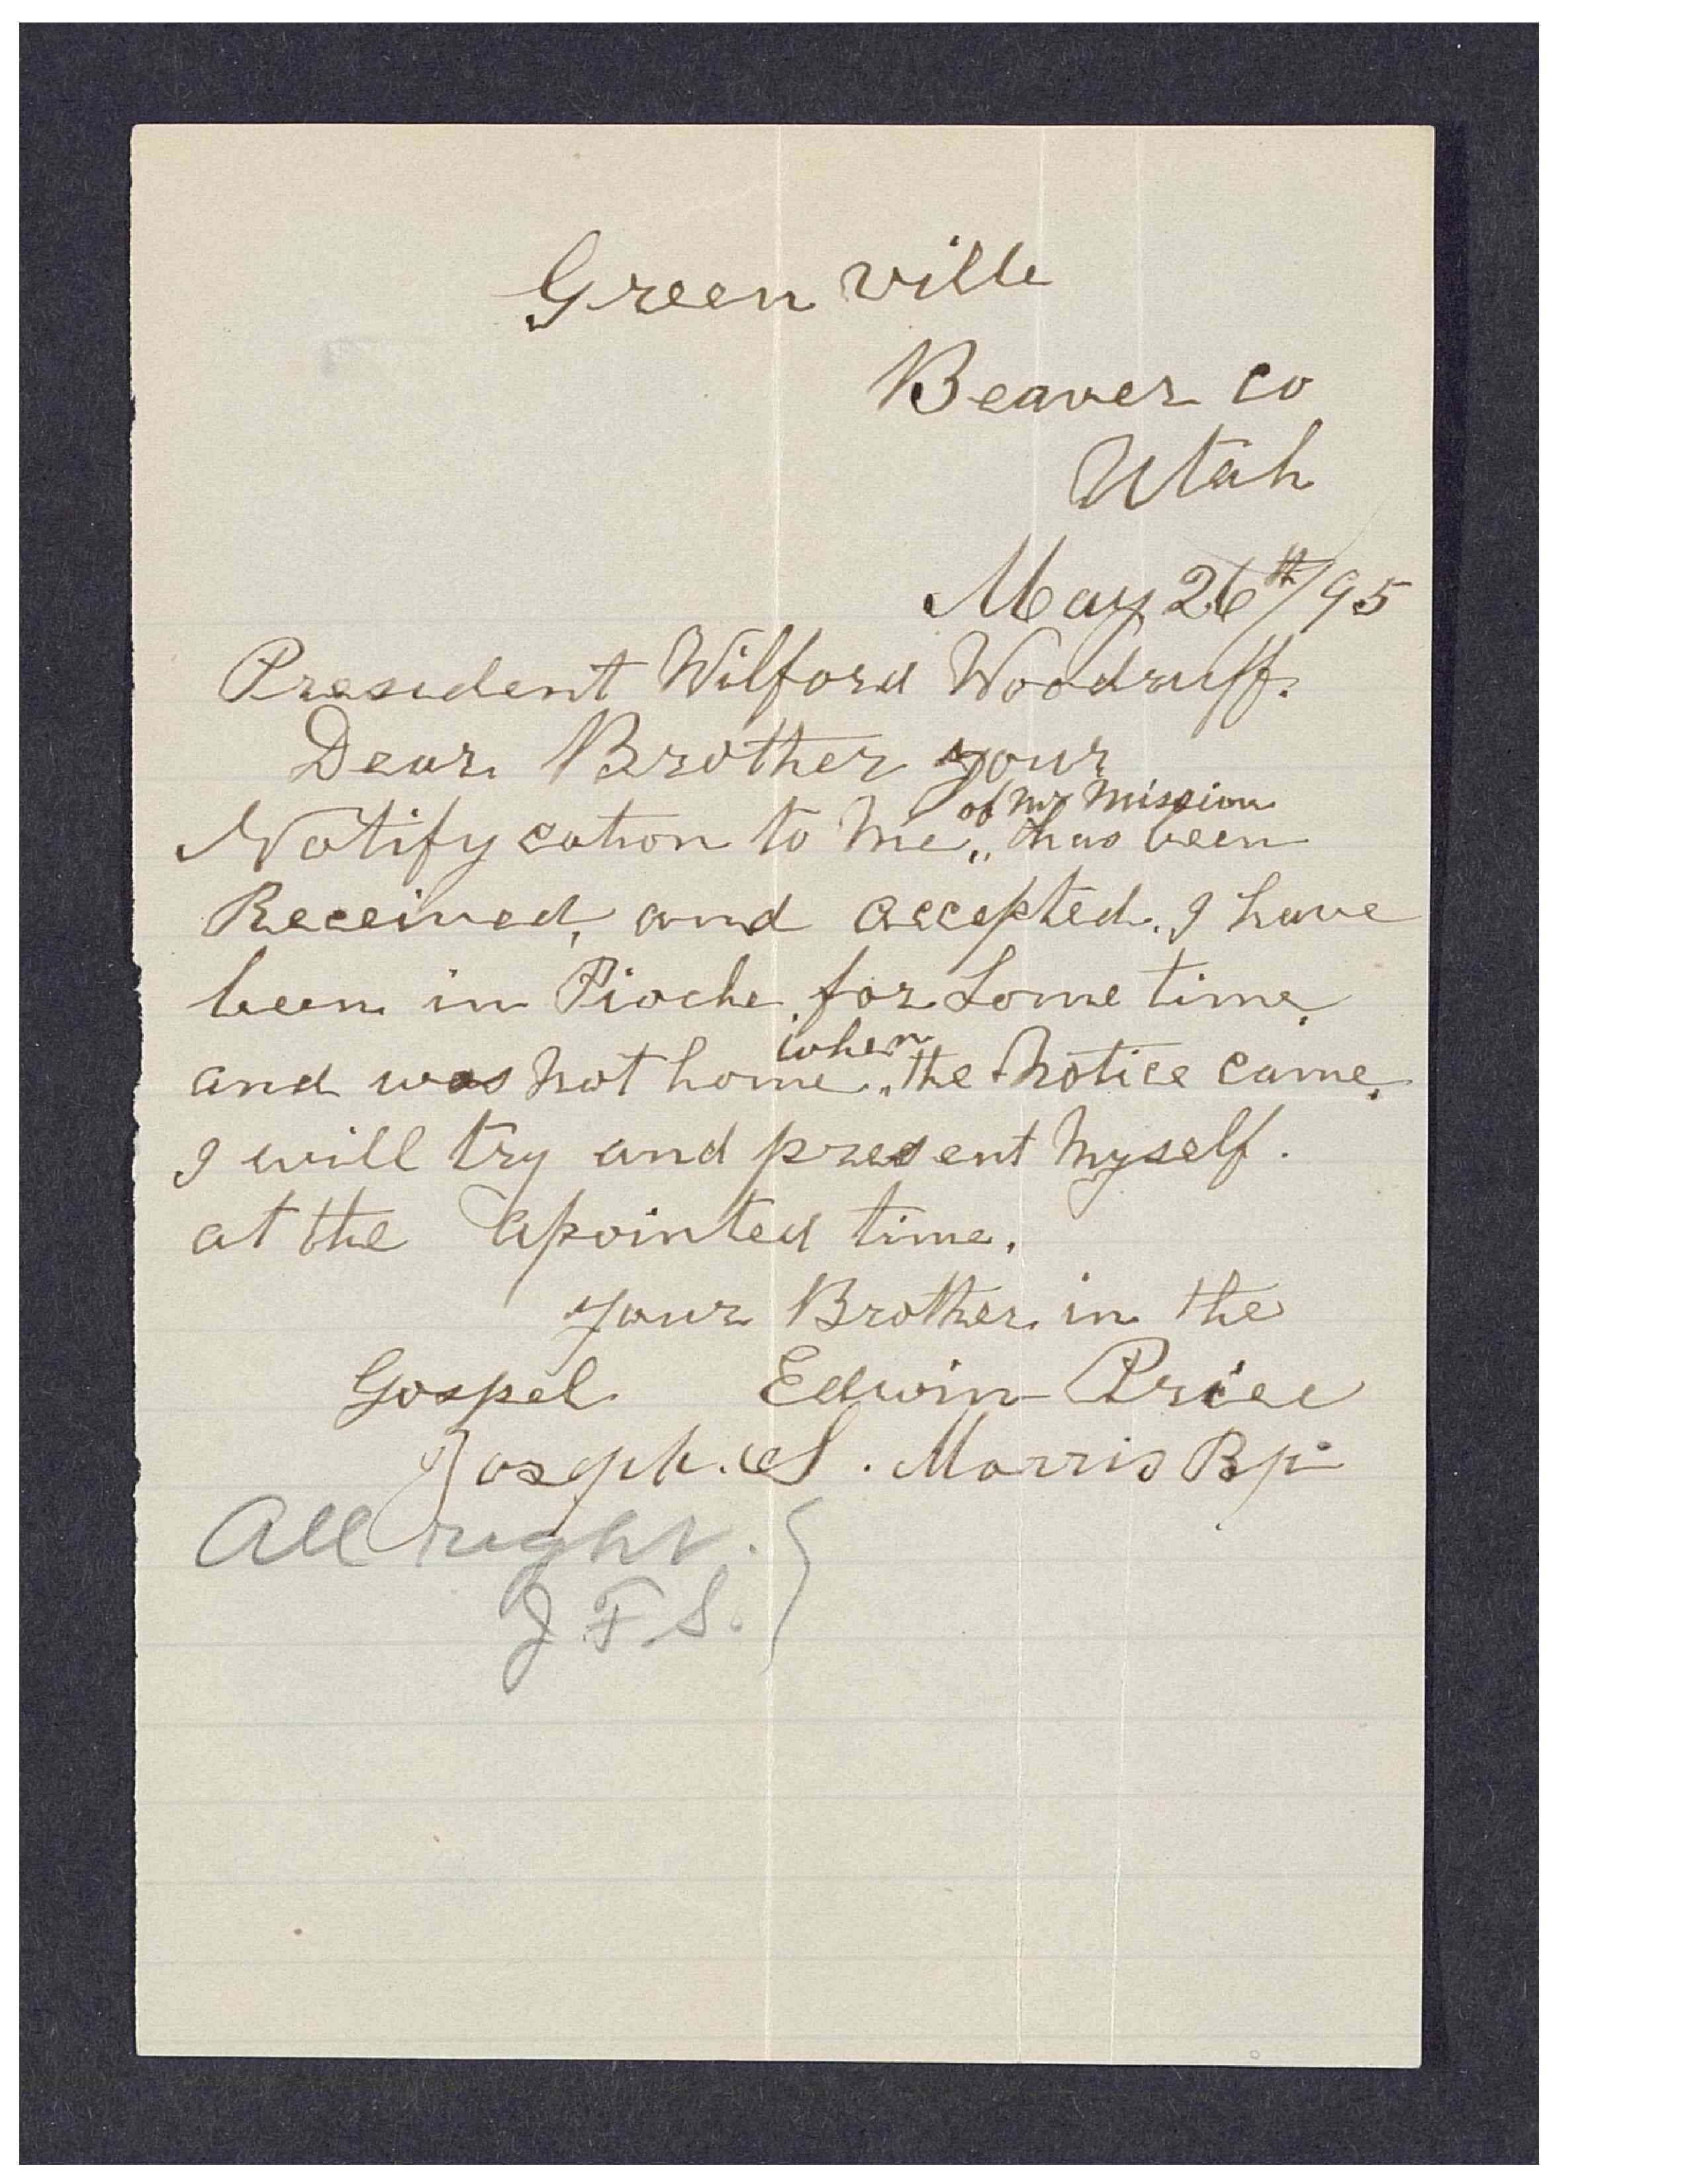 Green ville
Beaver co
Utah
May 26th/95
President Wilford Woodruff.
Dear Brother your
of my mission
Notify cation to me,, has been
Received, and accepted. I have
been in Pioche for Some time,
when
and was not home,, the Notice came.
I will try and present myself.
at the apointed time.
your Brother in the
Gospel Edwin Price
Joseph. S. Morris Bp
All right.
J F S.